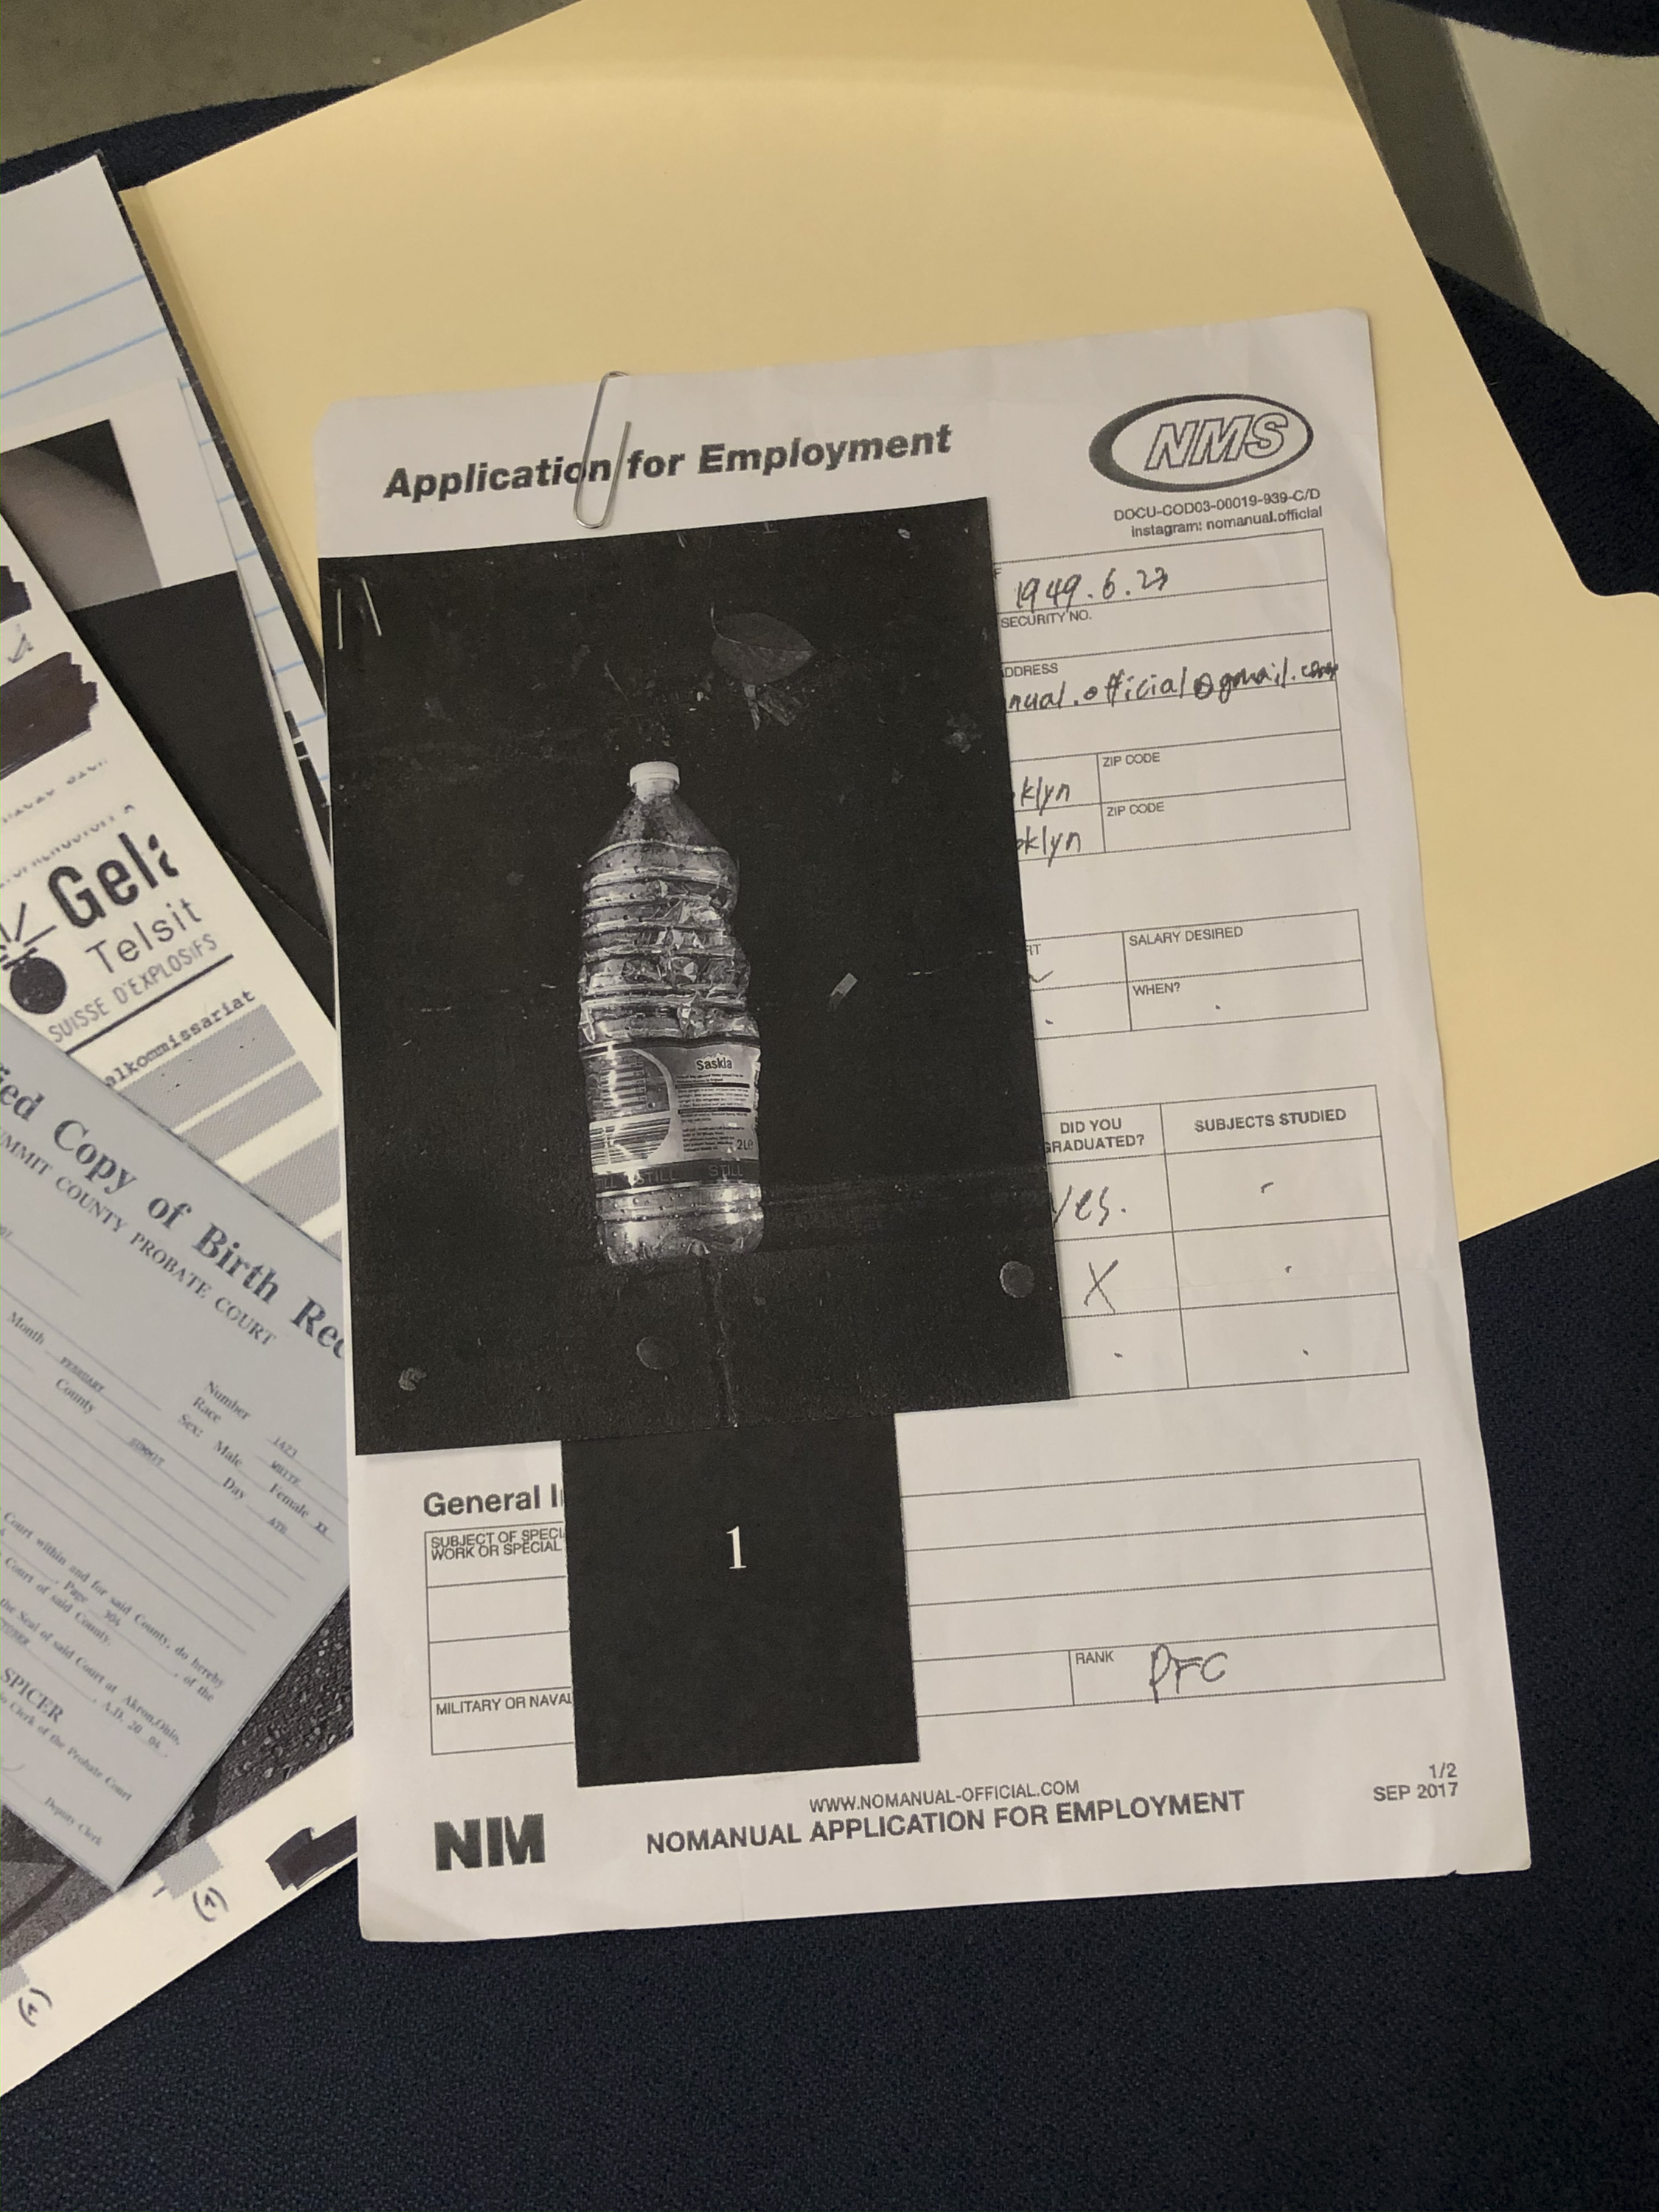 Application for Employment
NMS
DOCU-COD03-00019-939-C/D
instagram: nomanual.official
1949.6.23
SECURITY NO.
DDRESS
nual.official@gmail.com
ZIP CODE
klyn
ZIP CODE
oklyn
RT
SALARY DESIRED
WHEN?
DID YOU GRADUATED?
SUBJECTS STUDIED
yes.
X
Saskia
2L
STILL STILL
1
General I
SUBJECT OF SPECI
WORK OR SPECIAL
MILITARY OR NAVAL
RANK
PFC
WWW.NOMANUAL-OFFICIAL.COM
NOMANUAL APPLICATION FOR EMPLOYMENT
NM
1/2
SEP 2017
Gela
Telsit
SUISSE D'EXPLOSIFS
alkommissariat
ied Copy of Birth Rec
UMMIT COUNTY PROBATE COURT
Month FEBRUARY
Number 1423
County SUMMIT
Race WHITE
Sex: Male Female XX
Day 4TH
Court within and for said County, do hereby
Page 304 , of the
Court of said County.
the Seal of said Court at Akron, Ohio,
A.D. 20 04
SPICER
Clerk of the Probate Court
Deputy Clerk